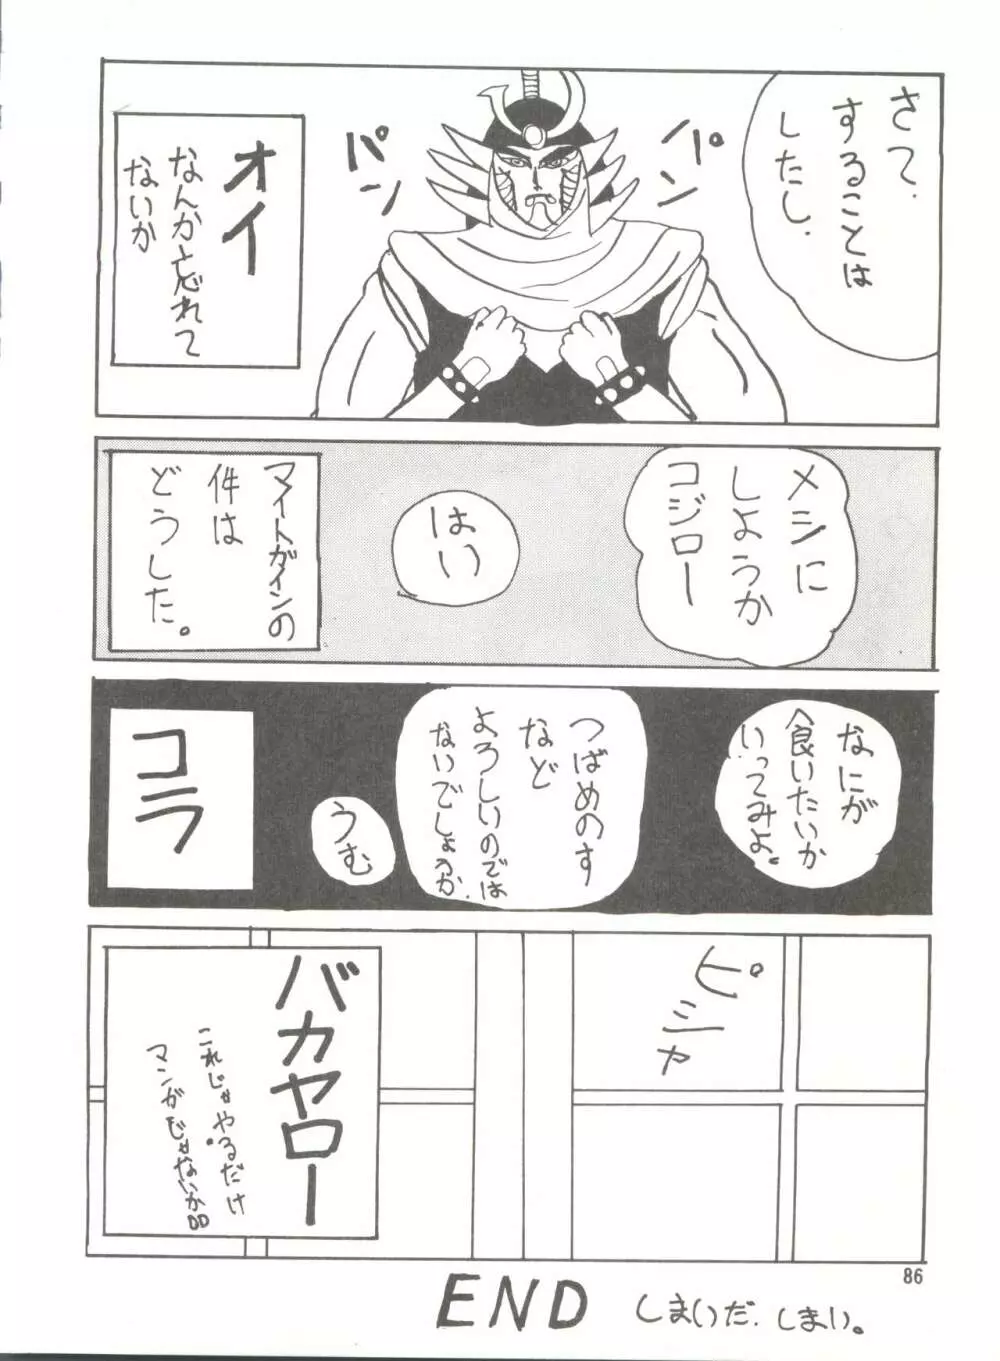 さて、
することは
したし.
パン
パン
オイ
なんか忘れて
ないか
メシに
しようか
コジロー
はい
マイトガインの
件は
どうした。
なにが
食いたいか
いってみよ。
つばめのす
など
よろしいのでは
ないでしょうか.
うむ
コラ
ピシャ
バカヤロー
これじゃやるだけ
マンガじゃないか
86
END
しまいだ. しまい。